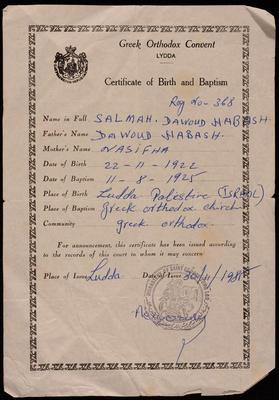 Greek Orthodox Convent
LYDDA
Certificate of Birth and Baptism
Reg No- 368
Name in Full SALMAH. DAWOUD HABASH.
Father's Name DAWOUD HABASH.
Mother's Name NASIFHA
Date of Birth 22-11-1922
Date of Baptism 11-8-1925
Place of Birth Ludda Palestine (ISRAOL)
Place of Baptism Greek orthodox church
Community greek orthodox.
For announcement, this certificate has been issued according
to the records of this court to whom it may concern
Place of Issue Ludda Date of Issue 30-11-1985